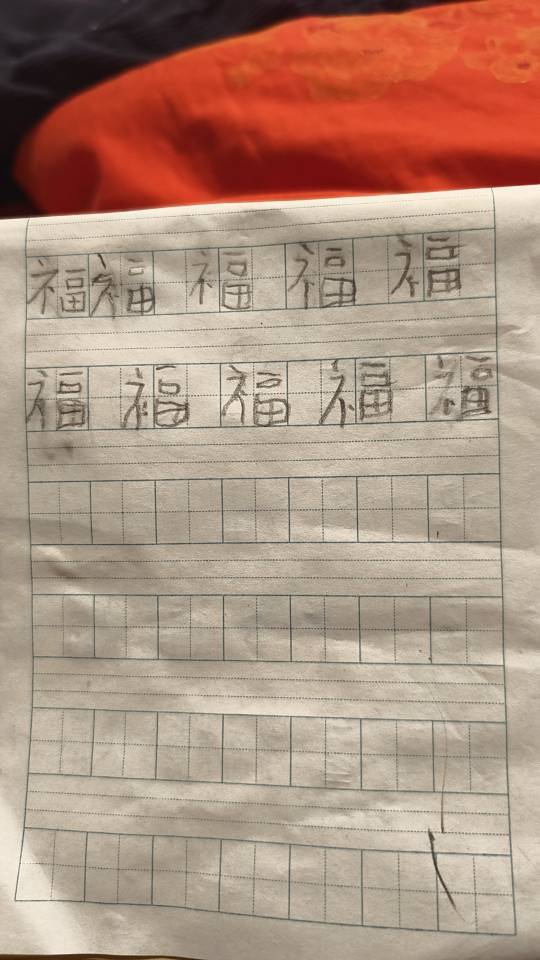 福福福福福
福福福福福